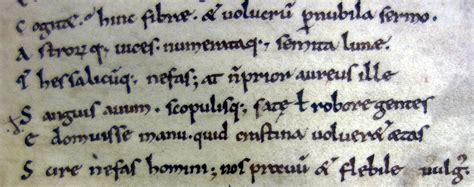 C ognitæ hinc fibræ & uolucrū p nubila sermo.
A strorūq; uices. numerataq; semita lunæ.
T hessalicūq; nefas; at n̄ prior aureus ille
S anguis auum. scopulisq; satę ł robore gentes
E domuisse manu. quid crastina uoluer& ætas
S cire nefas homini; nos prauū & flebile uulg;